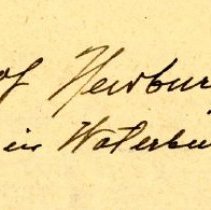 of Newbur
in Waterbu